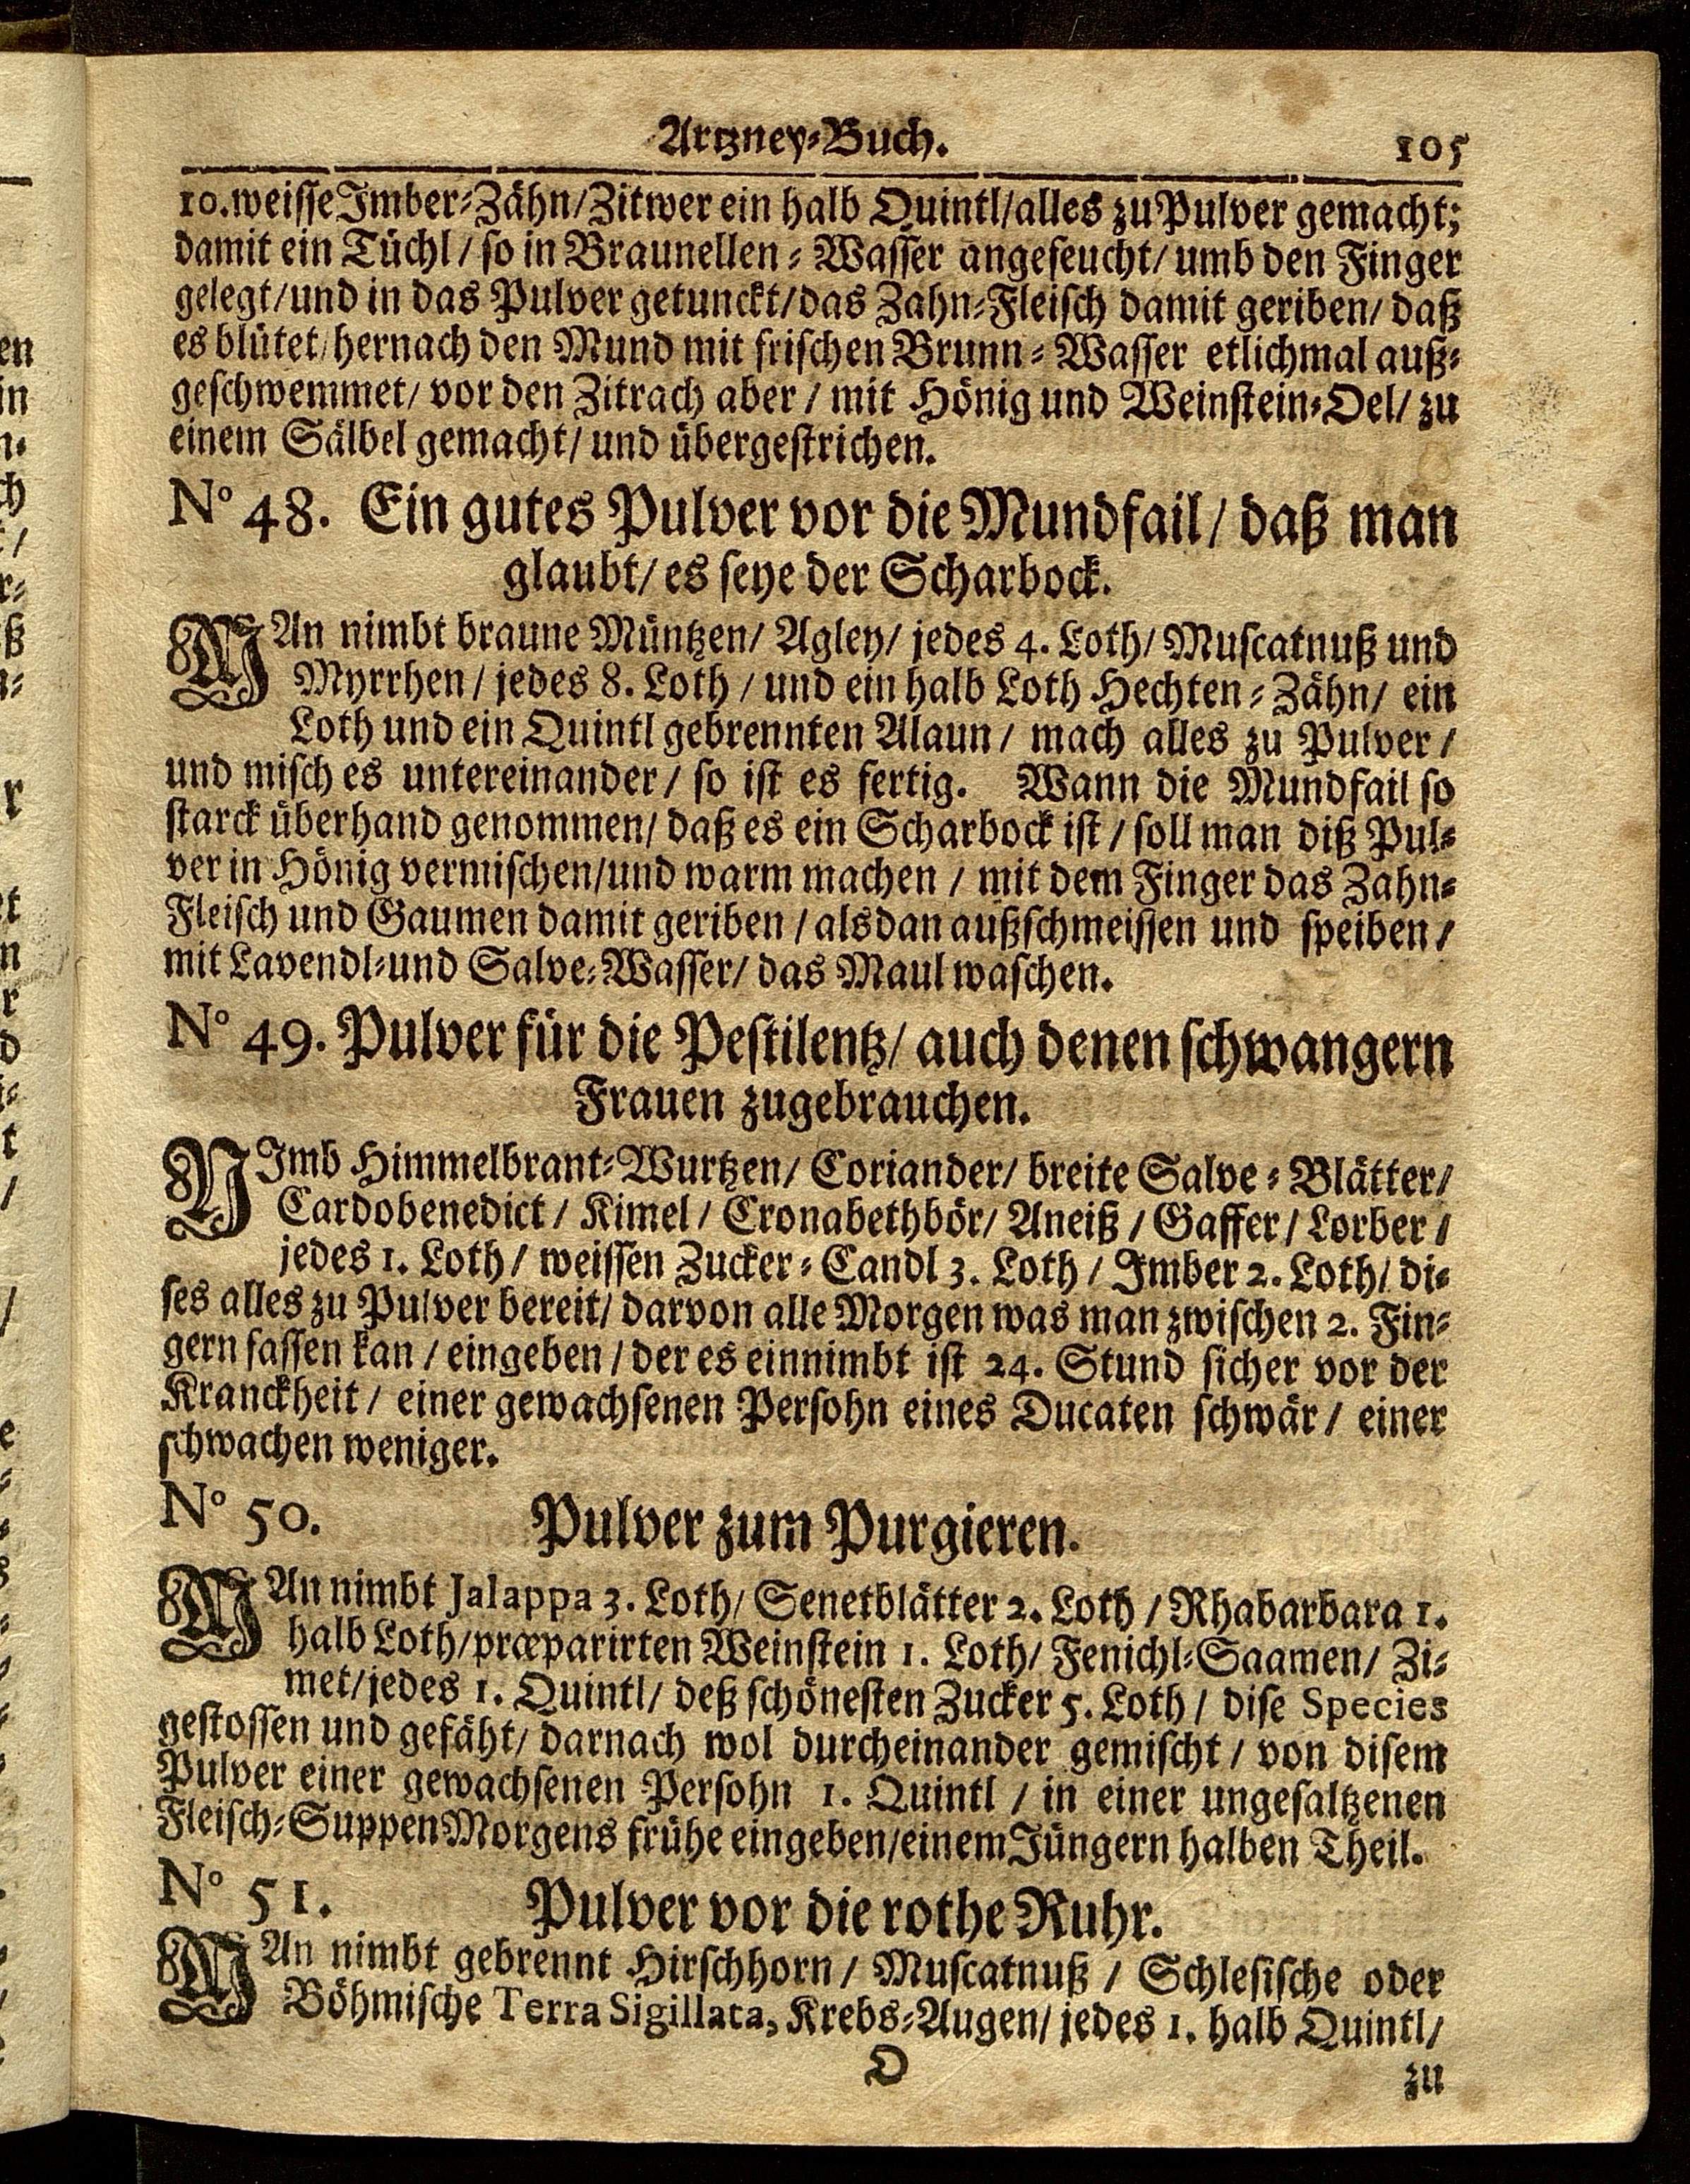 Artzney-Buch. 105
10. weisse Imber-Zähn/ Zitwer ein halb Quintl/ alles zu Pulver gemacht;
damit ein Tüchl / so in Braunellen-Wasser angefeucht/ umb den Finger
gelegt/ und in das Pulver getunckt/ das Zahn-Fleisch damit geriben/ daß
es blütet/ hernach den Mund mit frischen Brunn-Wasser etlichmal auß-
geschwemmet/ vor den Zitrach aber / mit Hönig und Weinstein-Oel/ zu
einem Sälbel gemacht/ und übergestrichen.
N° 48. Ein gutes Pulver vor die Mundfail/ daß man
glaubt/ es seye der Scharbock.
MAn nimbt braune Müntzen/ Agley/ jedes 4. Loth/ Muscatnuß und
Myrrhen / jedes 8. Loth / und ein halb Loth Hechten-Zähn/ ein
Loth und ein Quintl gebrennten Alaun / mach alles zu Pulver /
und misch es untereinander / so ist es fertig. Wann die Mundfail so
starck überhand genommen/ daß es ein Scharbock ist / soll man diß Pul-
ver in Hönig vermischen/ und warm machen / mit dem Finger das Zahn-
Fleisch und Gaumen damit geriben / alsdan außschmeissen und speiben /
mit Lavendl- und Salve-Wasser/ das Maul waschen.
N° 49. Pulver für die Pestilentz/ auch denen schwangern
Frauen zugebrauchen.
NImb Himmelbrant-Wurtzen/ Coriander/ breite Salve-Blätter/
Cardobenedict / Kimel / Cronabethbör/ Aneiß / Gaffer / Lorber /
jedes 1. Loth / weissen Zucker-Candl 3. Loth / Imber 2. Loth/ di-
ses alles zu Pulver bereit/ darvon alle Morgen was man zwischen 2. Fin-
gern fassen kan / eingeben / der es einnimbt ist 24. Stund sicher vor der
Kranckheit / einer gewachsenen Persohn eines Ducaten schwär / einer
schwachen weniger.
N° 50. Pulver zum Purgieren.
MAn nimbt Jalappa 3. Loth/ Senetblätter 2. Loth / Rhabarbara 1.
halb Loth/ præparirten Weinstein 1. Loth/ Fenichl-Saamen/ Zi-
met/ jedes 1. Quintl/ deß schönesten Zucker 5. Loth / dise Species
gestossen und gefäht/ darnach wol durcheinander gemischt / von disem
Pulver einer gewachsenen Persohn 1. Quintl / in einer ungesaltzenen
Fleisch-Suppen Morgens frühe eingeben/ einem Jüngern halben Theil.
N° 51. Pulver vor die rothe Ruhr.
MAn nimbt gebrennt Hirschhorn / Muscatnuß / Schlesische oder
Böhmische Terra Sigillata, Krebs-Augen/ jedes 1. halb Quintl/
O zu